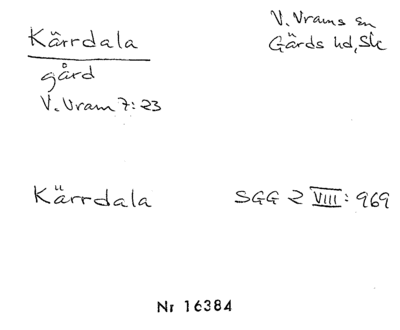 Kärrdala
V. Vrams sn
Gärds hd, Sk
gård
V. Vram 7:23
Kärrdala
SGG 2 VIII: 969
Nr 16384